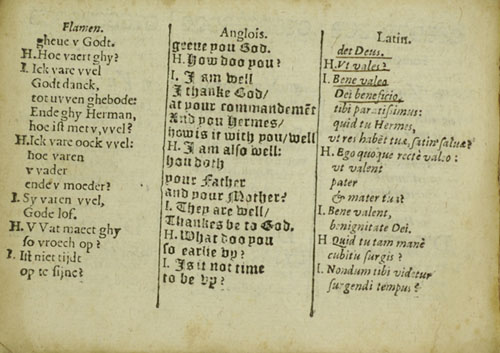 Flamen.
gheue v Godt.
H. Hoe vaert ghy?
I. Ick vare vvel
Godt danck,
tot uvven ghebode:
Ende ghy Herman,
hoe ist met v, vvel?
H. Ick vare oock vvel:
hoe varen
v vader
ende v moeder?
I. Sy varen vvel,
Gode lof.
H. VVat maect ghy
so vroech op?
I. Ist niet tijdt
op te sijne?
Anglois.
geeue you God.
H. How doo you?
I. I am well
I thanke God/
at your commandemẽt
And you Hermes/
how is it with you/well
H. I am also well:
how doth
your Father
and your Mother?
I. They are well/
Thankes be to God.
H. What doo you
so earlie vp?
I. Is it not time
to be vp?
Latin.
det Deus.
H. Vt vales?
I. Bene valeo
Dei beneficio,
tibi paratissimus:
quid tu Hermes,
vt res habẽt tuæ, satin' saluæ?
H. Ego quoque rectè valeo:
vt valent
pater
& mater tua?
I. Bene valent,
benignitate Dei.
H Quid tu tam manè
cubitu surgis?
I. Nondum tibi videtur
surgendi tempus?